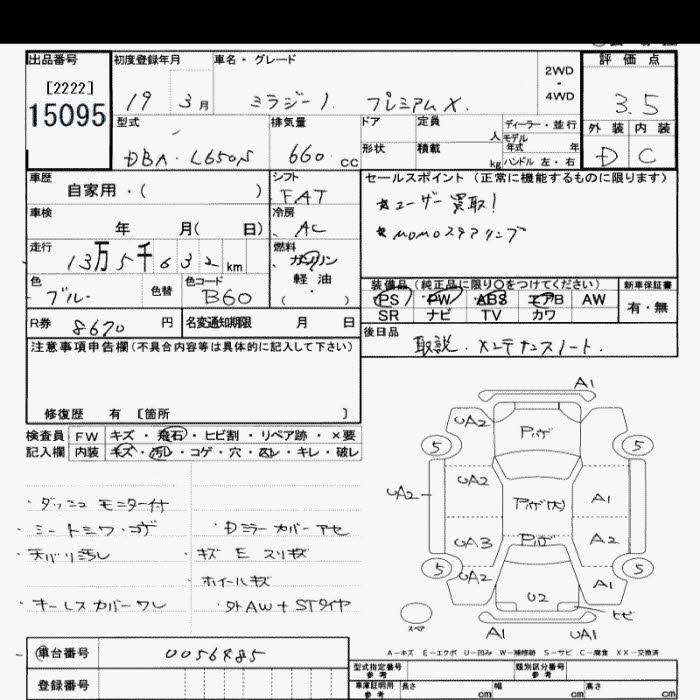 出品番号 初度登録年月 車名・グレード 2WD ・ 4WD 評価点
[2222]
15095 19 3月 ミラジーノ プレミアムX. 3.5
型式 排気量 ドア 定員 人 ディーラー・並行 外装 内装
モデル 年式 年
DBA・L650S 660 cc 形状 積載 kg ハンドル 左・右 D C
車歴 自家用・( ) シフト FAT セールスポイント (正常に機能するものに限ります)
★ユーザー買取!
車検 年 月( 日) 冷房 AC ★MOMOステアリング
走行 13万5千632km 燃料 ガソリン
軽油
( ・ )
色 ブルー 色替 色コード B60 装備品 (純正品に限り○をつけてください) 新車保証書
PS PW ABS エアB AW 有・無
SR ナビ TV カワ
R券 8670 円 名変通知期限 月 日 後日品 取説・メンテナンスノート.
注意事項申告欄(不具合内容等は具体的に記入して下さい)
修復歴 有 [箇所 ]
検査員 FW キズ・飛石・ヒビ割・リペア跡・×要
記入欄 内装 キズ・汚レ・コゲ・穴・スレ・キレ・破レ
・ダッシュモニター付
・シートシワ・コゲ
・天バリ汚レ
・キーレスカバーワレ
・Dミラーカバーアセ
・キズ E スリキズ
・ホイールキズ
・外AW+STタイヤ
A1
UA2 アバゲ
5 5
UA2 UA2 A1
UA3 アバゲ A2
5 5
UA2 U2 A1
ヒビ
スペア A1 UA1
A-キズ E-エクボ U-凹み W-補修跡 S-サビ C-腐食 XX-交換済
車台番号 0056985
登録番号
型式指定番号 参考 類別区分番号 参考
車庫証明用 参考 長さ cm 幅 cm 高さ cm